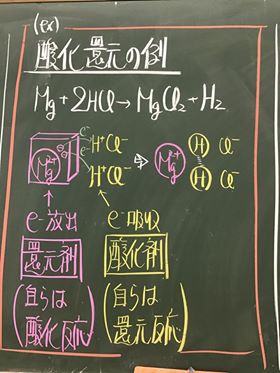 (ex)
酸化還元の例
Mg+2HCl→MgCl₂+H₂
e⁻ H⁺Cl⁻
Mg²⁺ e⁻ H⁺Cl⁻ ⇨ Mg²⁺ H H Cl⁻ Cl⁻
e⁻放出 e⁻吸収
還元剤 酸化剤
(自らは酸化反応) (自らは還元反応)